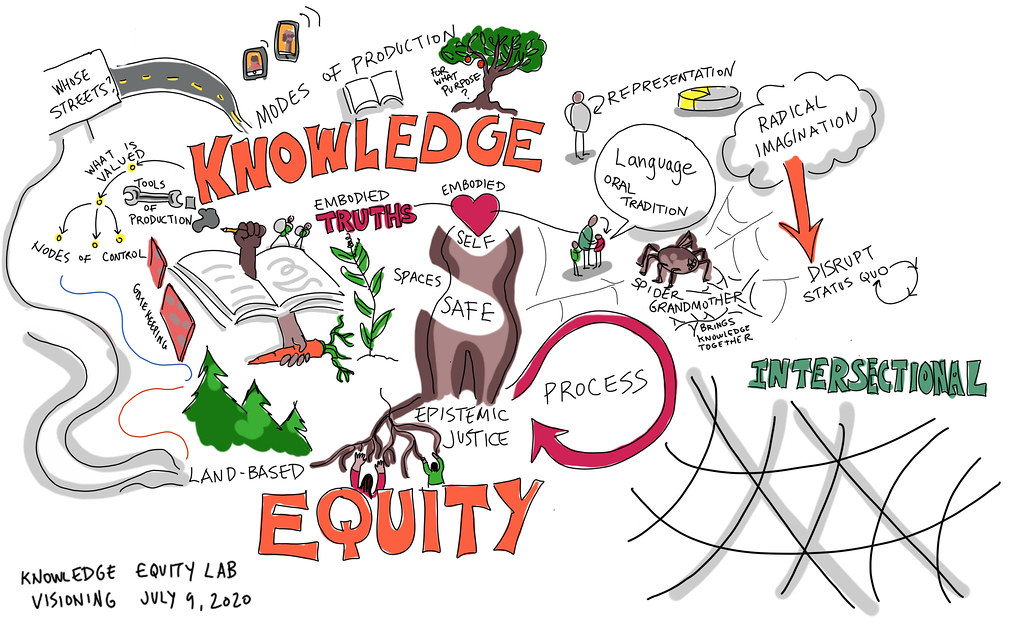 WHOSE
STREETS?
MODES OF PRODUCTION
FOR
WHAT
PURPOSE
?
REPRESENTATION
RADICAL
IMAGINATION
KNOWLEDGE
WHAT IS
VALUED
TOOLS
OF
PRODUCTION
NODES OF CONTROL
GATEKEEPING
EMBODIED
TRUTHS
EMBODIED
SELF
SPACES
SAFE
Language
ORAL
TRADITION
SPIDER
GRANDMOTHER
BRINGS
KNOWLEDGE
TOGETHER
DISRUPT
STATUS QUO
PROCESS
INTERSECTIONAL
EPISTEMIC
JUSTICE
LAND-BASED
EQUITY
KNOWLEDGE EQUITY LAB
VISIONING JULY 9, 2020